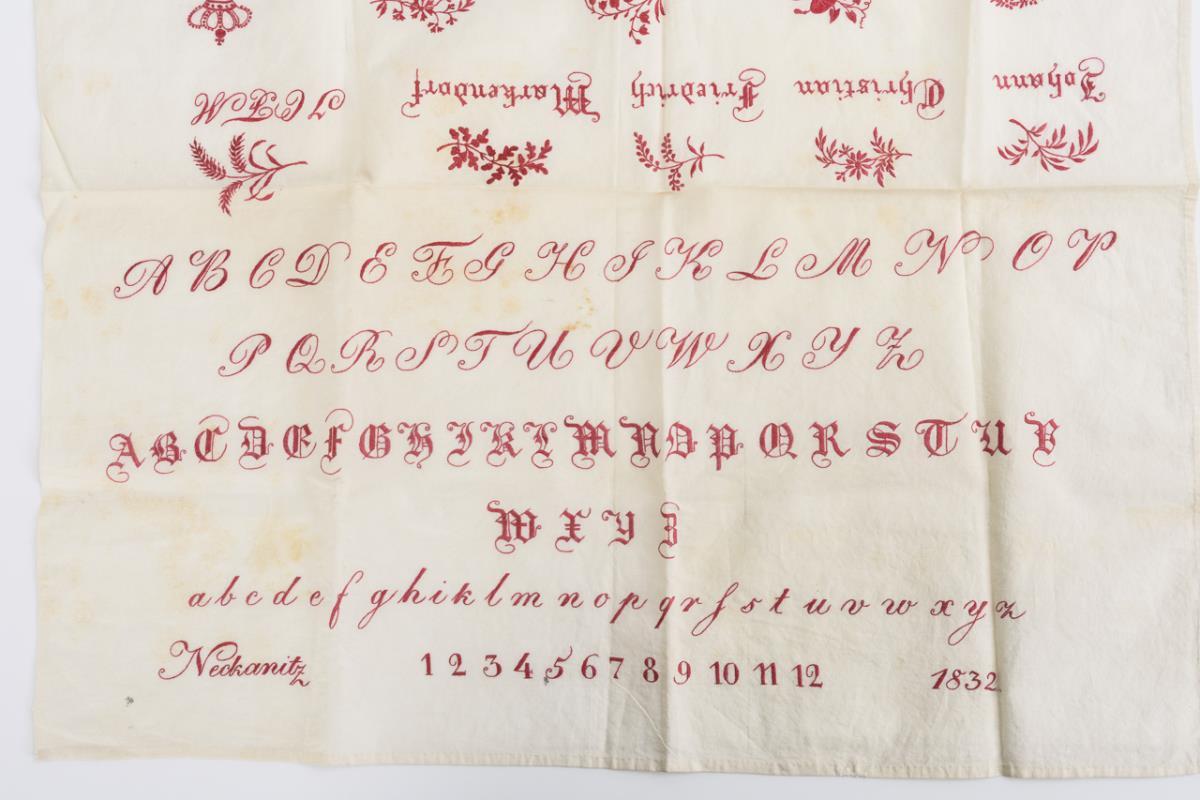 Johann Christian Friedrich Markendorf
A B C D E F G H I K L M N O P
P Q R S T U V W X Y Z
A B C D E F G H I K L M N O P Q R S T U V
W X Y Z
a b c d e f g h i k l m n o p q r ſ s t u v w x y z
Neckanitz 1 2 3 4 5 6 7 8 9 10 11 12 1832